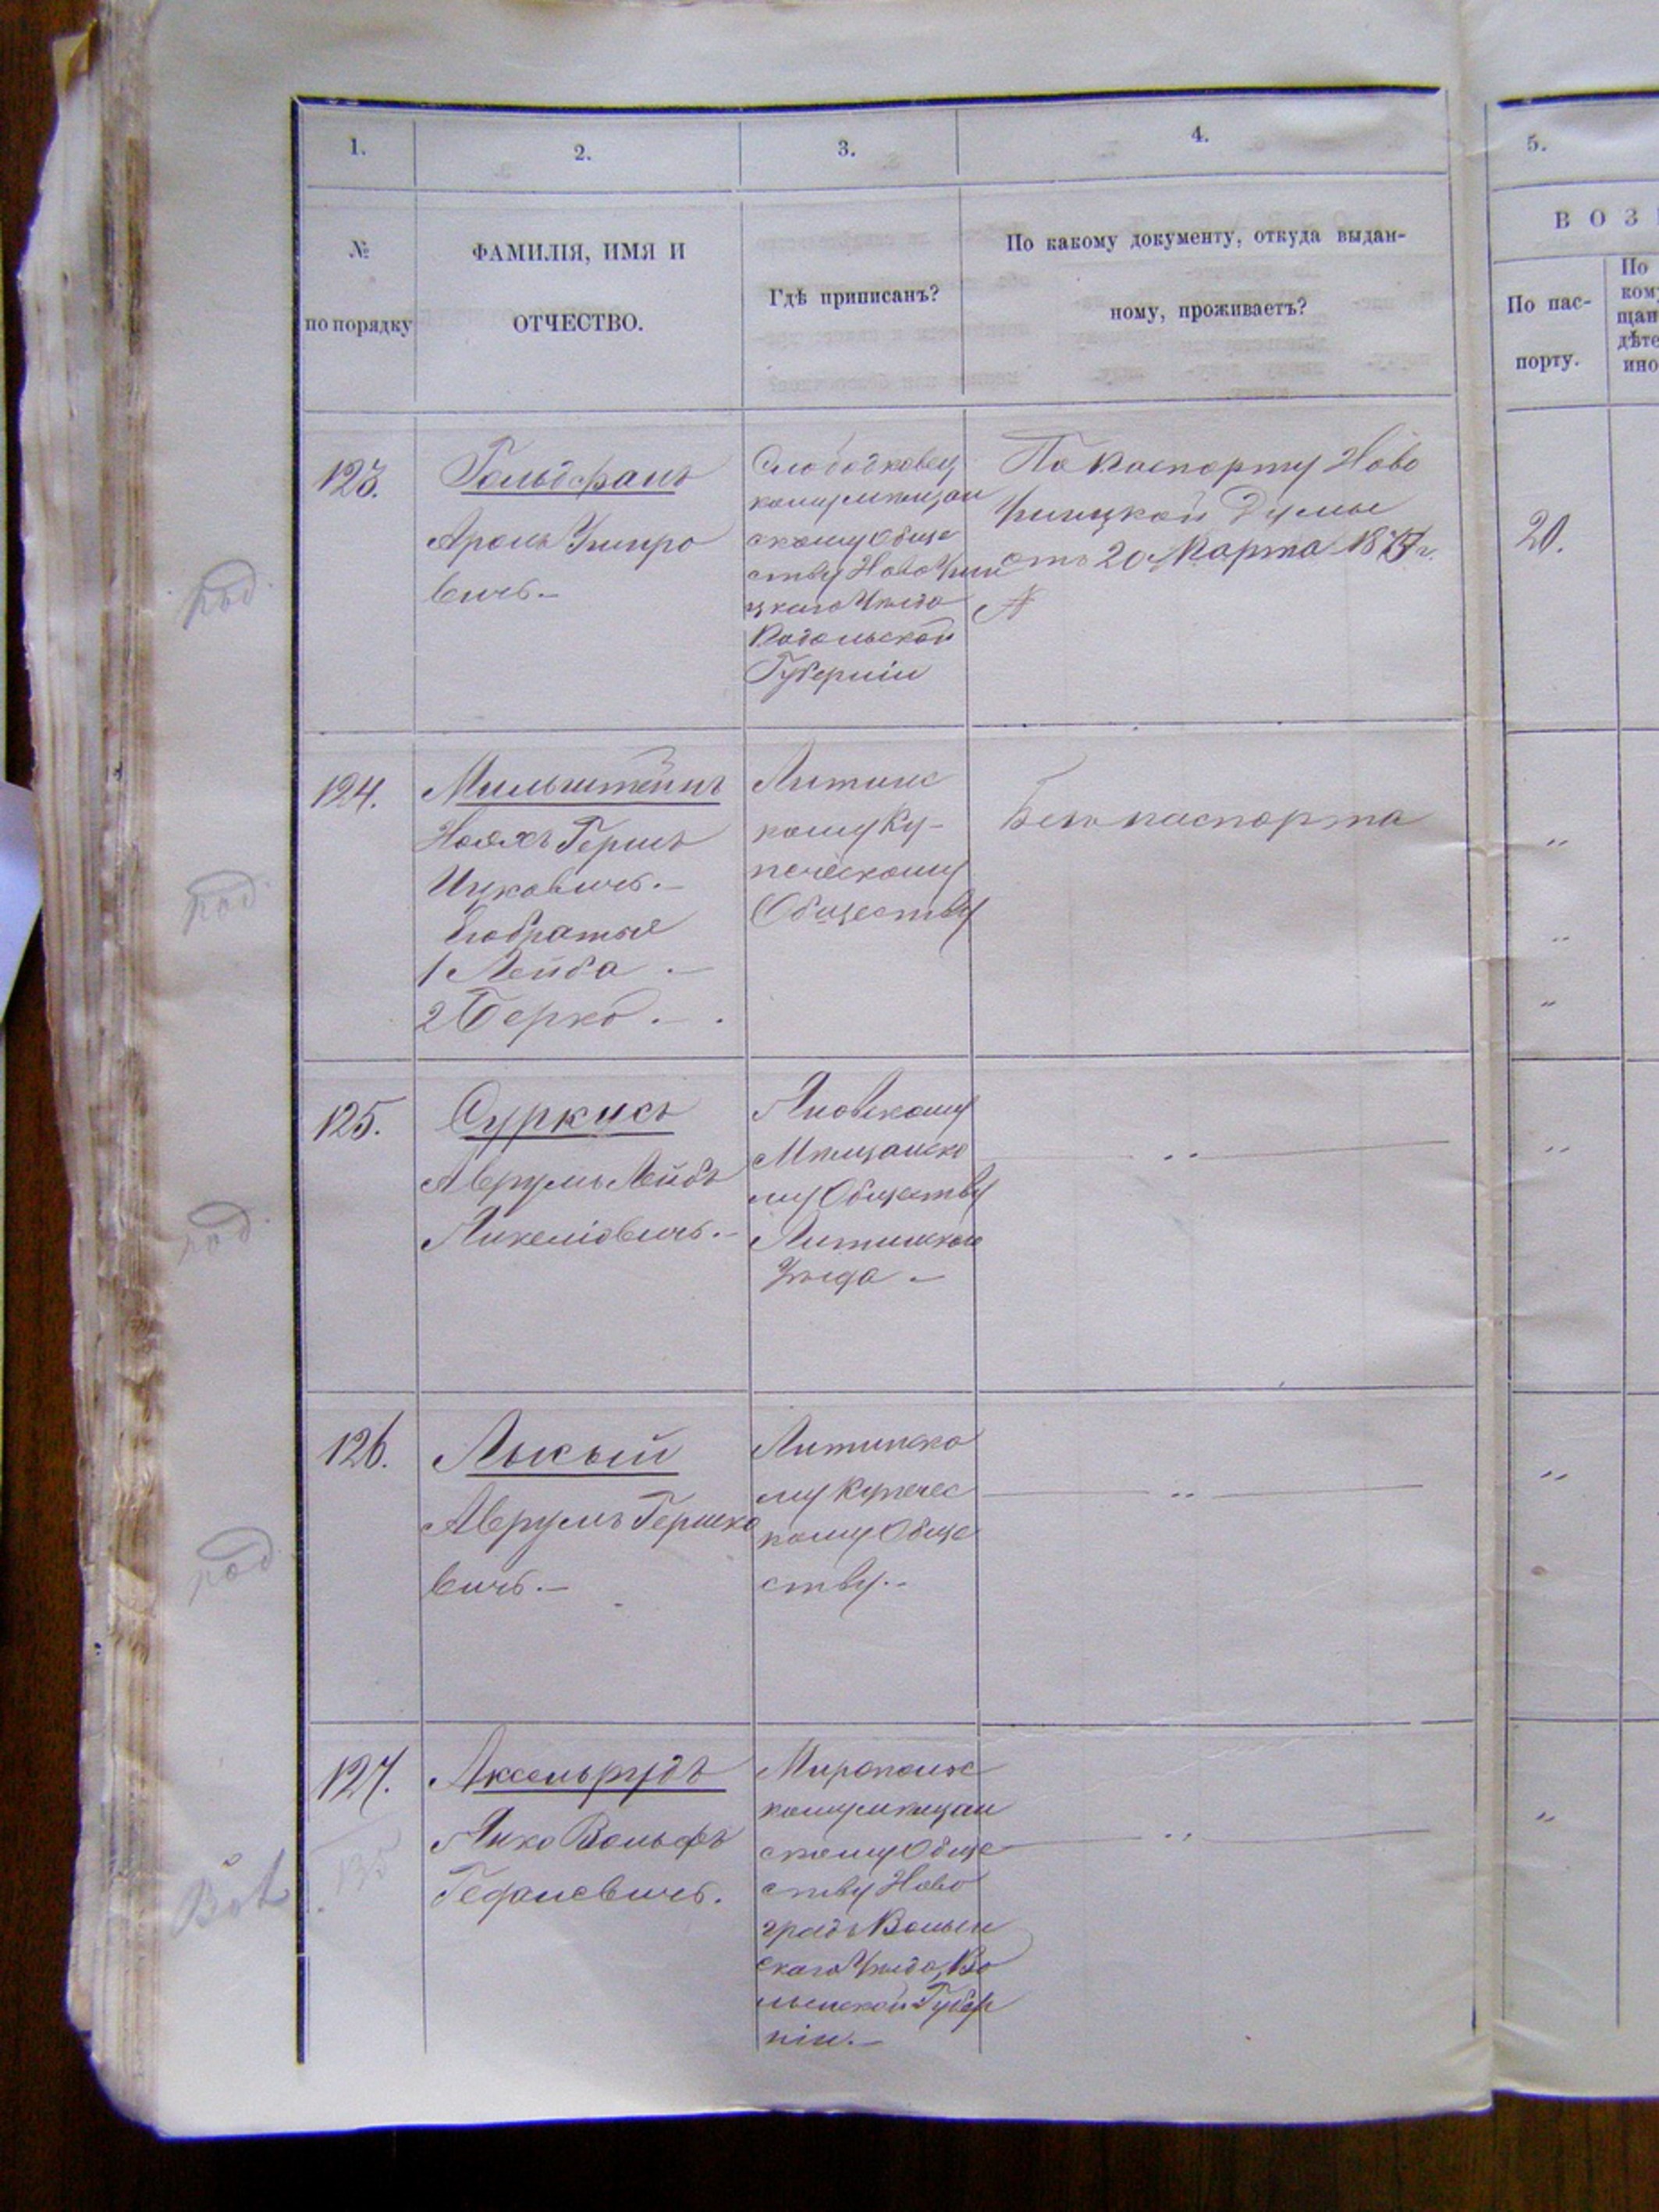 1.
2.
3.
4.
5.
№
по порядку
ФАМИЛІЯ, ИМЯ И
ОТЧЕСТВО.
Гдѣ приписанъ?
По какому документу, откуда выдан-
ному, проживаетъ?
ВОЗ
По пас-
порту.
По
ком
щан
дѣте
ино
123.
Гольдфанъ
Аронъ
вичъ.-
Слободковец
кому мѣщан
скому Обще
ству Ново Уши
цкаго Уѣзда
Подольской
Губерніи
По Паспорту Ново
Ушицкой Думы
отъ 20 Марта 18
№
20.
124.
Мильштейнъ
Ноахъ Гершъ
Ицковичъ.-
Его братья
1 Лейба.-
2 Берко.-
Литинс
кому Ку-
печескому
Обществу
Безъ паспорта
"
"
"
125.
Суркисъ
Аврумъ Лейбъ
Яновскому
Мѣщанско
му Обществу
Литинскаго
Уѣзда-
"
"
126.
Лысый
Аврумъ Гершко
вичъ.-
Литинско
му Купечес
кому Обще
ству.-
"
"
127.
Аксельрудъ
Янко Вольфъ
Миропольс
кому мѣщан
скому Обще
ству Ново
градъ Волын
скаго Уѣзда, Во
лынской Губер
ніи.-
"
"
род
род
род
род